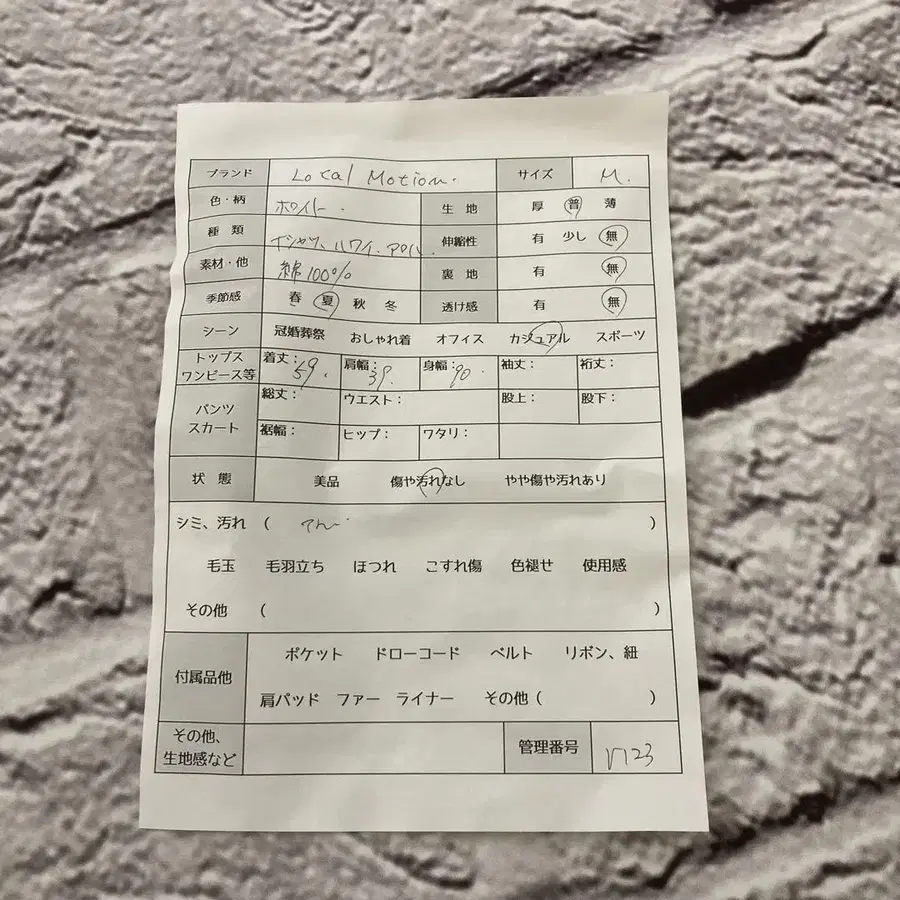 ブランド Local Motion. サイズ M.
色・柄 ホワイト. 生地 厚 普 薄
種類 Tシャツ、ハワイ.アロハ. 伸縮性 有 少し 無
素材・他 綿100% 裏地 有 無
季節感 春 夏 秋 冬 透け感 有 無
シーン 冠婚葬祭 おしゃれ着 オフィス カジュアル スポーツ
トップス ワンピース等 着丈: 59. 肩幅: 39. 身幅: 90. 袖丈: 裄丈:
パンツ スカート 総丈: ウエスト: 股上: 股下:
裾幅: ヒップ: ワタリ:
状態 美品 傷や汚れなし やや傷や汚れあり
シミ、汚れ ( )
毛玉 毛羽立ち ほつれ こすれ傷 色褪せ 使用感
その他 ( )
付属品他 ポケット ドローコード ベルト リボン、紐
肩パッド ファー ライナー その他 ( )
その他、
生地感など 管理番号 V123